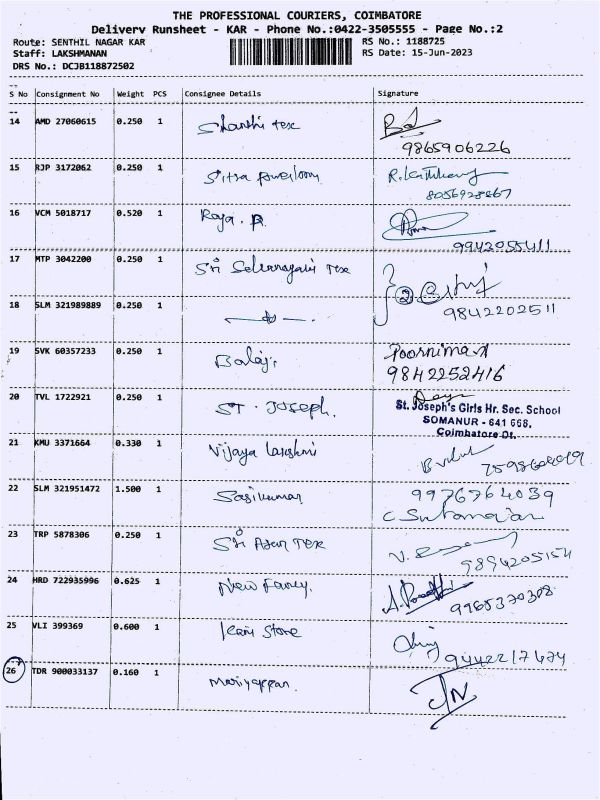 THE PROFESSIONAL COURIERS, COIMBATORE
Delivery Runsheet - KAR - Phone No.:0422-3505555 - Page No.:2
Route: SENTHIL NAGAR KAR RS No.: 1188725
Staff: LAKSHMANAN RS Date: 15-Jun-2023
DRS No.: DCJB118872502
S No Consignment No Weight PCS Consignee Details Signature
14 AMD 27060615 0.250 1 Shanthi Tex
9865906226
15 RJP 3172062 0.250 1 Sitra powerloom
8056928667
16 VCM 5018717 0.520 1 Raja. R
9942055411
17 MTP 3042200 0.250 1 Sri Selvanayaki Tex
18 SLM 321989889 0.250 1
9842202511
19 SVK 60357233 0.250 1 Balaji Poornima
9842252416
20 TVL 1722921 0.250 1 ST. Joseph.
St. Joseph's Girls Hr. Sec. School
SOMANUR - 641 668.
Coimbatore Dt.
21 KMU 3371664 0.330 1 Vijaya Lakshmi
22 SLM 321951472 1.500 1 Sasikumar 9976764039
23 TRP 5878306 0.250 1 Sri Tex
9894205154
24 HRD 722935996 0.625 1 New Fancy.
9965370308
25 VLI 399369 0.600 1 Store
9442217674
26 TDR 900033137 0.160 1 Mariyappan.